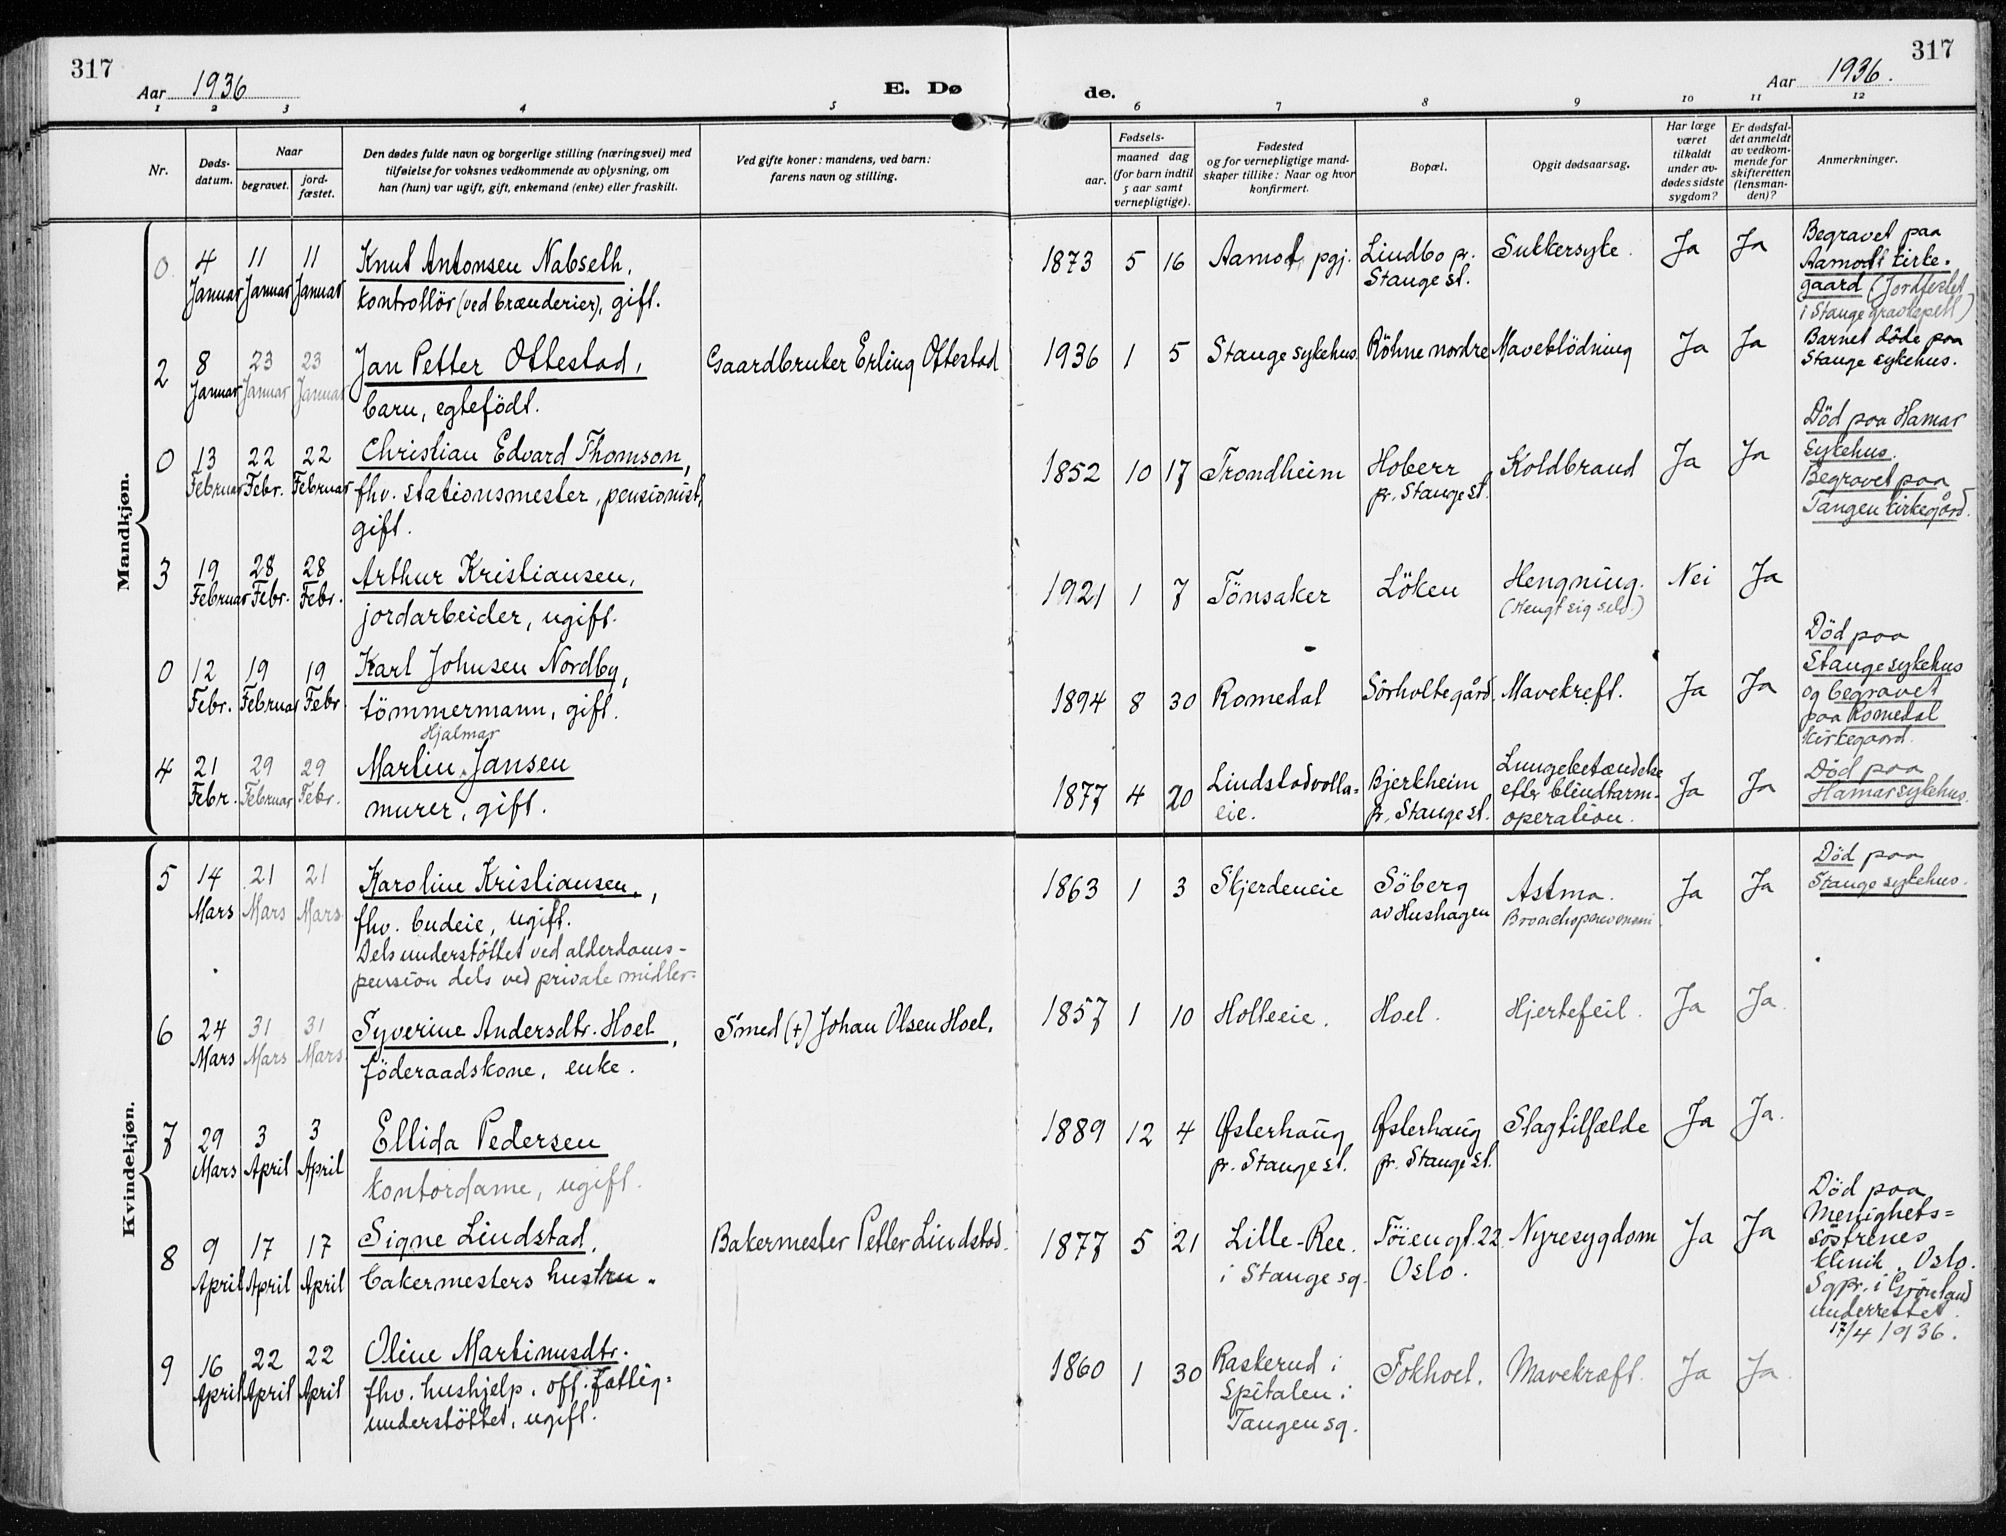 317
317
Aar 1936
E. Dø
de.
Aar 1936.
1 2 3 4 5 6 7 8 9 10 11 12
Nr.
Døds-
datum.
Naar
begravet.
jord-
fæstet.
Den dødes fulde navn og borgerlige stilling (næringsvei) med
tilføielse for voksnes vedkommende av oplysning, om
han (hun) var ugift, gift, enkemand (enke) eller fraskilt.
Ved gifte koner: mandens, ved barn:
farens navn og stilling.
Fødsels-
aar.
maaned dag
(for barn indtil
5 aar samt
vernepligtige).
Fødested
og for vernepligtige mand-
skaper tillike: Naar og hvor
konfirmert.
Bopæl.
Opgit dødsaarsag.
Har læge
været
tilkaldt
under av-
dødes sidste
sygdom?
Er dødsfal-
det anmeldt
av vedkom-
mende for
skifteretten
(lensman-
den)?
Anmerkninger.
Mandkjøn.
0 4 Januar 11 Januar 11 Januar
Knut Antonsen Nabseth,
kontrollör (ved brænderier), gift.
1873 5 16 Aamot pgj. Lindbo pr.
Stange st.
Sukkersyke. Ja Ja
Begravet paa
Aamodt kirke-
gaard (Jordfestet
i Stange gravkapell)
2 8 Januar 23 Januar 23 Januar
Jan Petter Ottestad,
barn, egtefödt.
Gaardbruker Erling Ottestad
1936 1 5 Stange sykehus. Röhne nordre Maveblödning Ja Ja
Barnet döde paa
Stange sykehus.
0 13 Februar 22 Febr. 22 Februar
Christian Edvard Thomson,
fhv. stationsmester, pensionist,
gift.
1852 10 17 Trondheim Hoberr
pr. Stange st.
Koldbrand Ja Ja
Död paa Hamar
sykehus.
Begravet paa
Tangen kirkegård.
3 19 Februar 28 Febr. 28 Febr.
Arthur Kristiansen,
jordarbeider, ugift.
1921 1 7 Tönsaker Löken Hengning.
(Hengt sig selv.)
Nei Ja
0 12 Febr. 19 Februar 19 Febr.
Karl Johnsen Nordby,
tömmermann, gift.
1894 8 30 Romedal Sörholtegård. Mavekreft. Ja Ja
Död paa
Stange sykehus
og begravet
paa Romedal
kirkegaard.
4 21 Febr. 29 Februar 29 Febr.
Hjalmar
Martin Jansen
murer, gift.
1877 4 20 Lindstadvolla-
eie.
Bjerkheim
pr. Stange st.
Lungebetændelse
efter blindtarm-
operation.
Ja Ja
Död paa
Hamar sykehus.
Kvindekjøn.
5 14 Mars 21 Mars 21 Mars.
Karoline Kristiansen,
fhv. budeie, ugift.
Dels understöttet ved alderdoms-
pension dels ved private midler.
1863 1 3 Skjerdeneie Söberg
av Hushagen
Astma.
Bronchopneumoni.
Ja Ja
Död paa
Stange sykehus.
6 24 Mars 31 Mars 31 Mars.
Syverine Andersdtr. Hoel,
föderaadskone, enke.
Smed (+) Johan Olsen Hoel.
1857 1 10 Holleeie. Hoel. Hjertefeil. Ja Ja.
7 29 Mars 3 April 3 April
Ellida Pedersen
kontordame, ugift.
1889 12 4 Østerhaug
pr. Stange st.
Østerhaug
pr. Stange st.
Slagtilfælde Ja Ja.
8 9 April 17 April 17 April
Signe Lindstad,
bakermesters hustru.
Bakermester Petter Lindstad.
1877 5 21 Lille-Ree.
i Stange sg.
Töiengt. 22
Oslo.
Nyresygdom Ja Ja
Död paa
Menighets=
söstrenes
klinik, Oslo.
Sgpr. i Grönland
underrettet
17/4 1936.
9 16 April 22 April 22 April
Oline Martinusdtr.
fhv. hushjelp, off. fattig-
understöttet, ugift.
1860 1 30 Raskerud i
Spitalen i
Tangen sg.
Fokhoel. Mavekræft. Ja Ja.